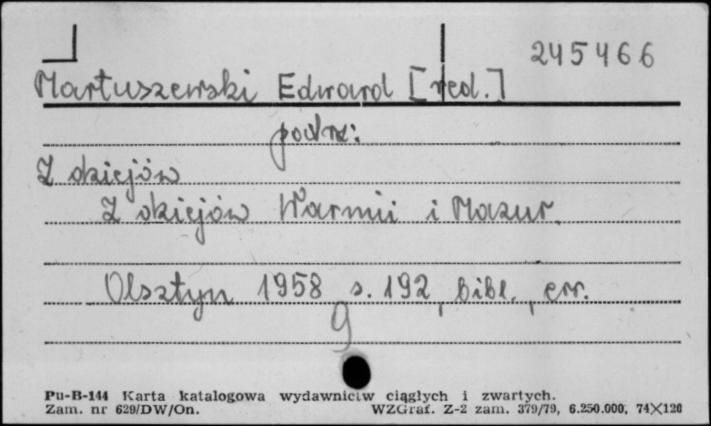 245466
Martuszewski Edward [red.]
podrz:
Z dziejów
Z dziejów Warmii i Mazur.
Olsztyn 1958 s. 192, bibl., err.
9
Pu-B-144 Karta katalogowa wydawnictw ciągłych i zwartych.
Zam. nr 629/DW/On. WZGraf. Z-2 zam. 379/79, 6.250.000, 74×120